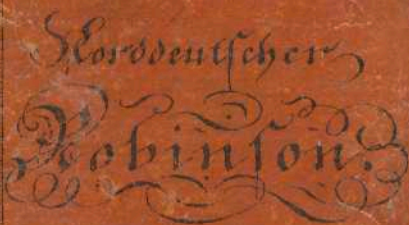 Norddeutſcher
Robinſon.